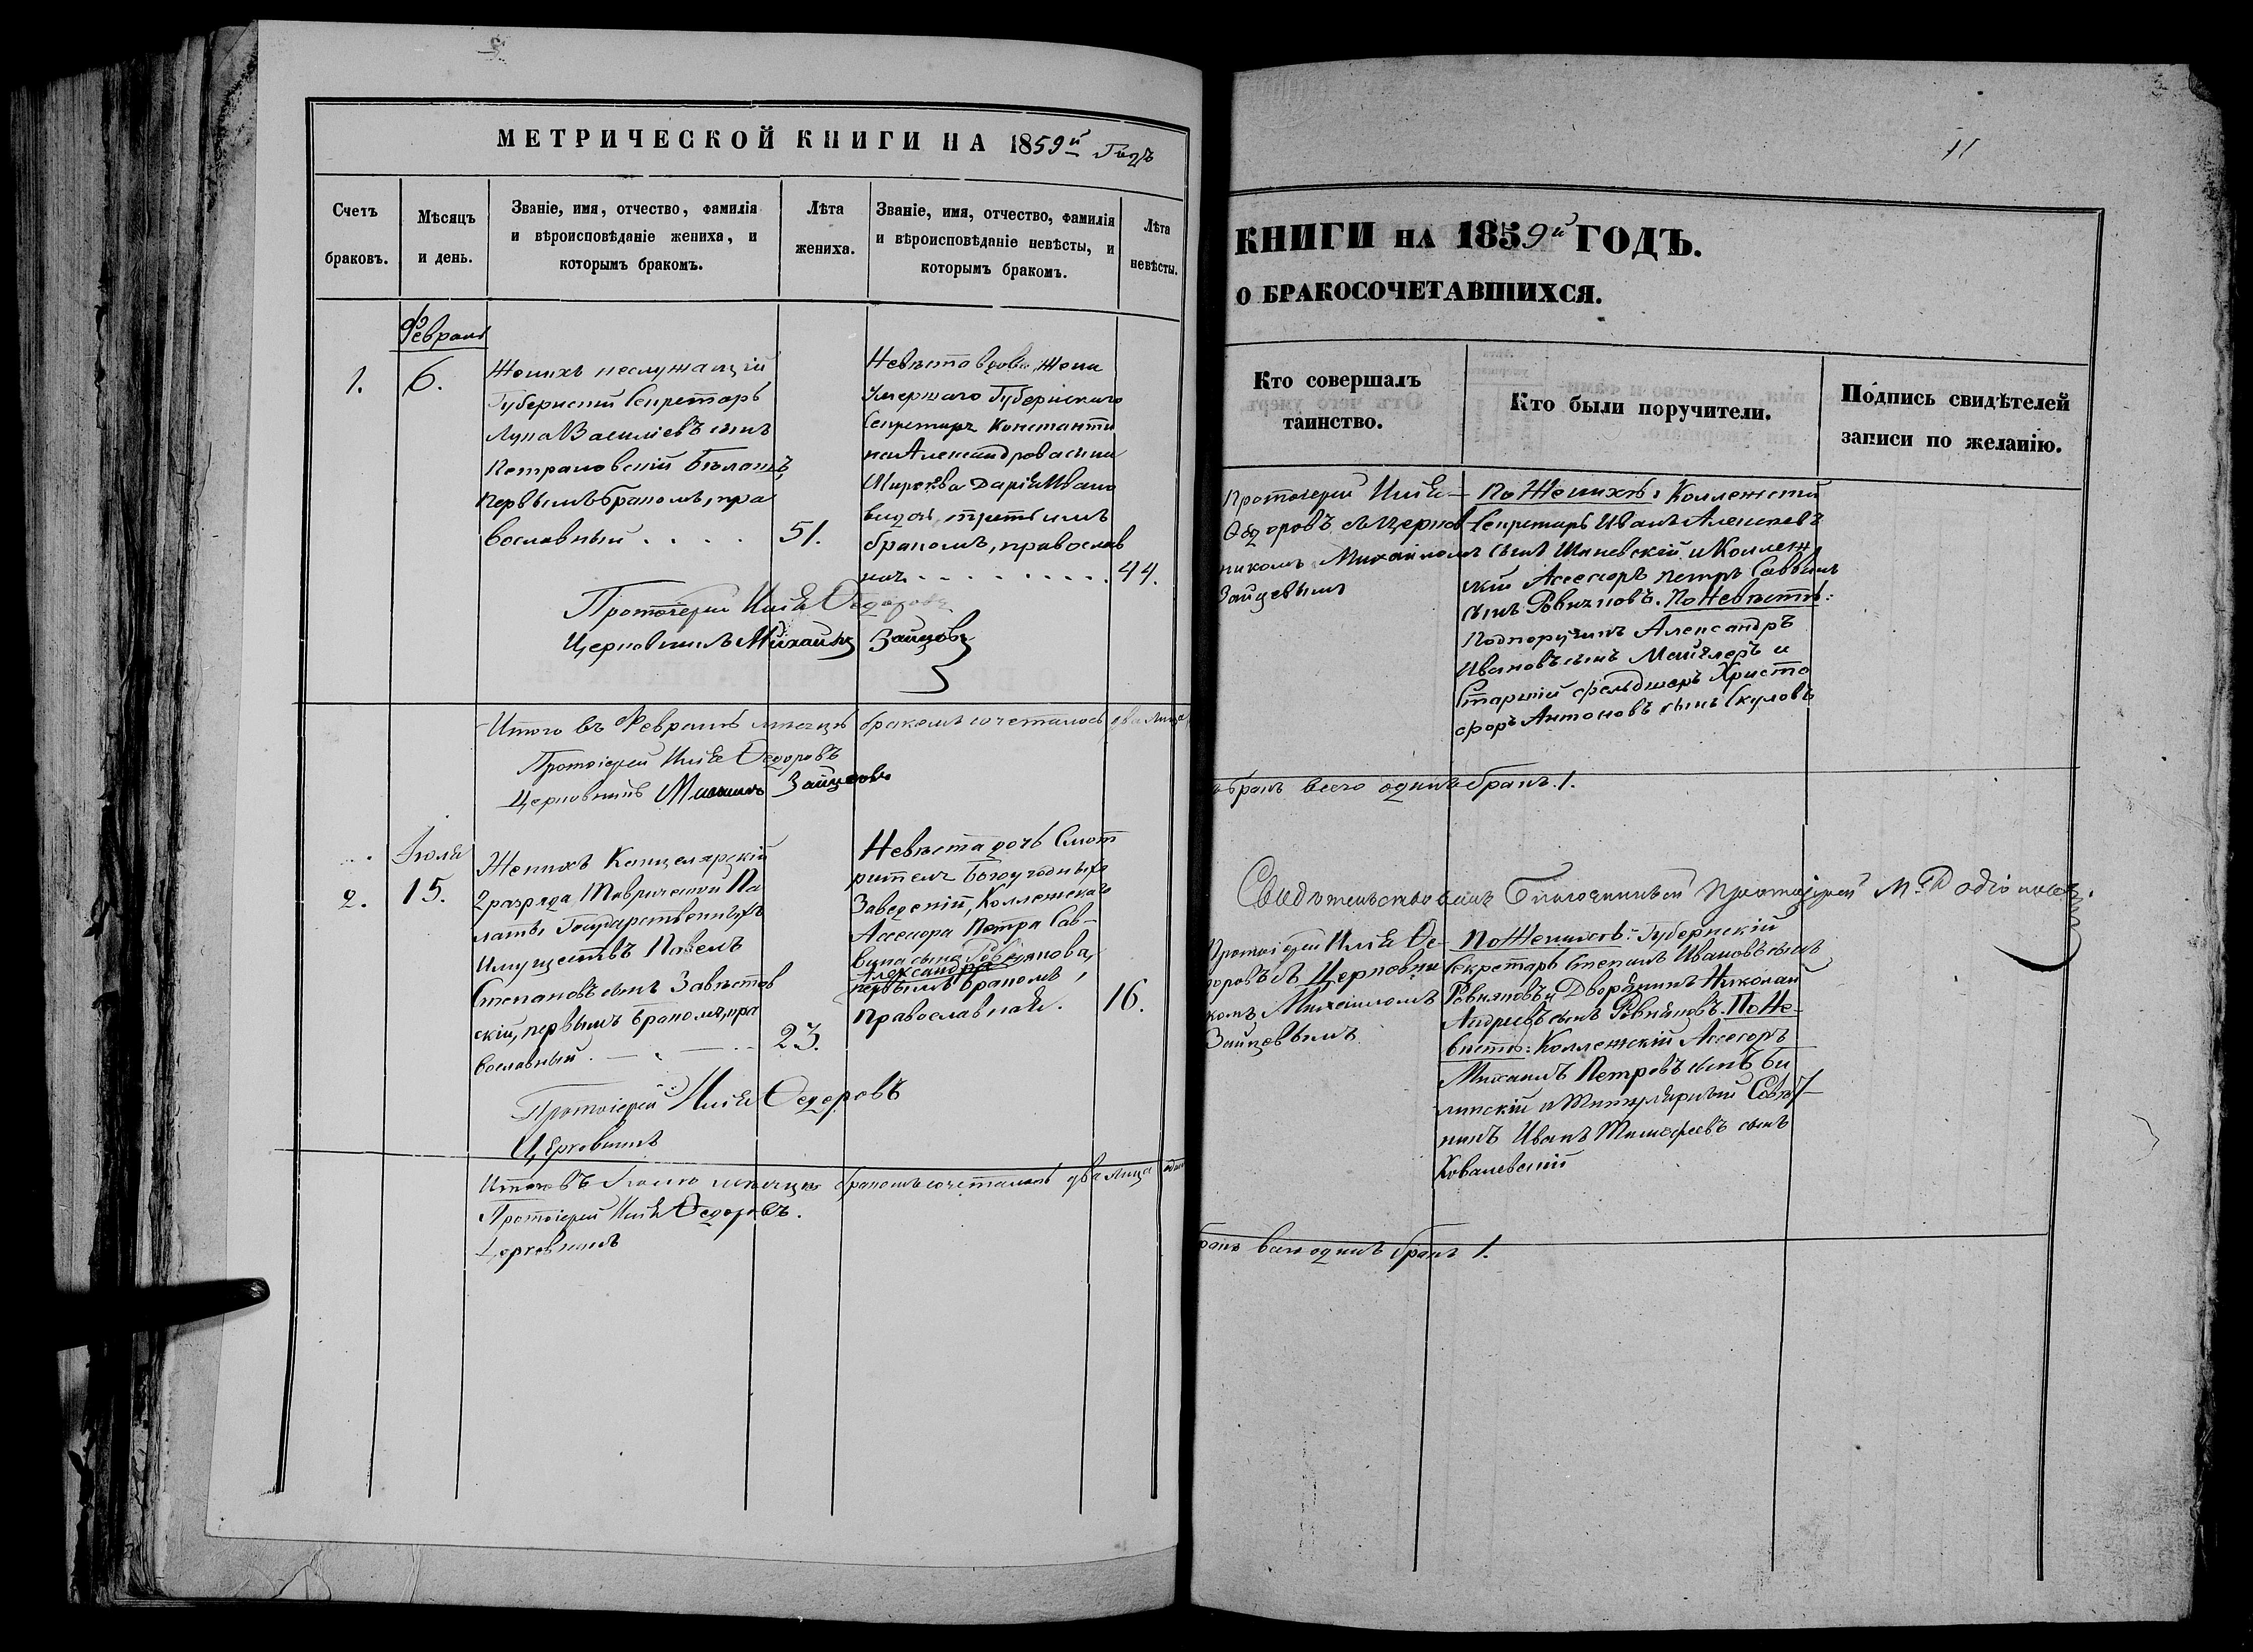 МЕТРИЧЕСКОЙ КНИГИ НА 1859й Годъ
Счетъ браковъ.
Мѣсяцъ и день.
Званіе, имя, отчество, фамилія
и вѣроисповѣданіе жениха, и
которымъ бракомъ.
Лѣта жениха.
Званіе, имя, отчество, фамилія
и вѣроисповѣданіе невѣсты, и
которымъ бракомъ.
Лѣта невѣсты.
Февраль
1.
6.
Женихъ неслужащій
Губернскій Секретарь
Лупа Васильевъ сынъ
первымъ бракомъ, пра
вославный . . . .
51.
Невѣста вдова жена
умершаго Губернскаго
Секретаря Константи
на Александрова сына
Дарія Ивано
вна третьимъ
бракомъ, православ
ная . . . . . . . . .
44.
Протоіерей Илія Ѳедоровъ
Церковникъ Михаилъ Зайцовъ
Итого въ Февралѣ мѣсяцѣ бракомъ сочеталось два лица
Протоіерей Илія Ѳедоровъ
Церковникъ Михаилъ Зайцовъ
Іюля
2.
15.
Женихъ Канцелярскій
2 разряда Таврической Па
латы Государственныхъ
Имуществъ Павелъ
Степановъ сынъ Завѣтов
скій, первымъ бракомъ, пра
вославный . —
23.
Невѣста дочь Смот
рителя Богоугодныхъ
Заведеній, Коллежскаго
Ассесора Петра Сав-
вина сына Ровнянова,
Александра
первымъ бракомъ,
Православная.
16.
Протоіерей Илія Ѳедоровъ
Церковникъ
Итого въ Іюлѣ мѣсяцѣ бракомъ сочеталось два лица
Протоіерей Илія Ѳедоровъ.
Церковникъ
11
КНИГИ НА 1859й ГОДЪ.
О БРАКОСОЧЕТАВШИХСЯ.
Кто совершалъ
таинство.
Кто были поручители.
Подпись свидѣтелей
записи по желанію.
Протоіерей Илія
Ѳедоровъ съ Церков
никомъ Михаиломъ
Зайцевымъ
По Женихѣ: Коллежскій
Секретарь Иванъ Алексѣевъ
сынъ и Коллеж
скій Ассесоръ Петръ Саввинъ
сынъ Ровняновъ. По Невѣстѣ:
Подпоручикъ Александръ
Ивановъ сынъ и
Старшій фельдшеръ Христо
форъ Антоновъ сынъ Скуловъ
бракъ всего одинъ бракъ 1.
Свидѣтельствовалъ Благочинный Протоіерей М. Родіоновъ
Протоіерей Илія Ѳе-
доровъ съ Церковни
комъ Михаиломъ
Зайцевымъ
По Женихѣ: Губернскій
Секретарь Степанъ Ивановъ сынъ
Ровняновъ и Дворянинъ Николай
Андреевъ сынъ Ровняновъ. По Не-
вѣстѣ: Коллежскій Ассесоръ
Михаилъ Петровъ сынъ Би
линскій и Титулярный Совѣт-
никъ Иванъ Тимофеевъ сынъ
Ковалевскій
бракъ одинъ бракъ 1.